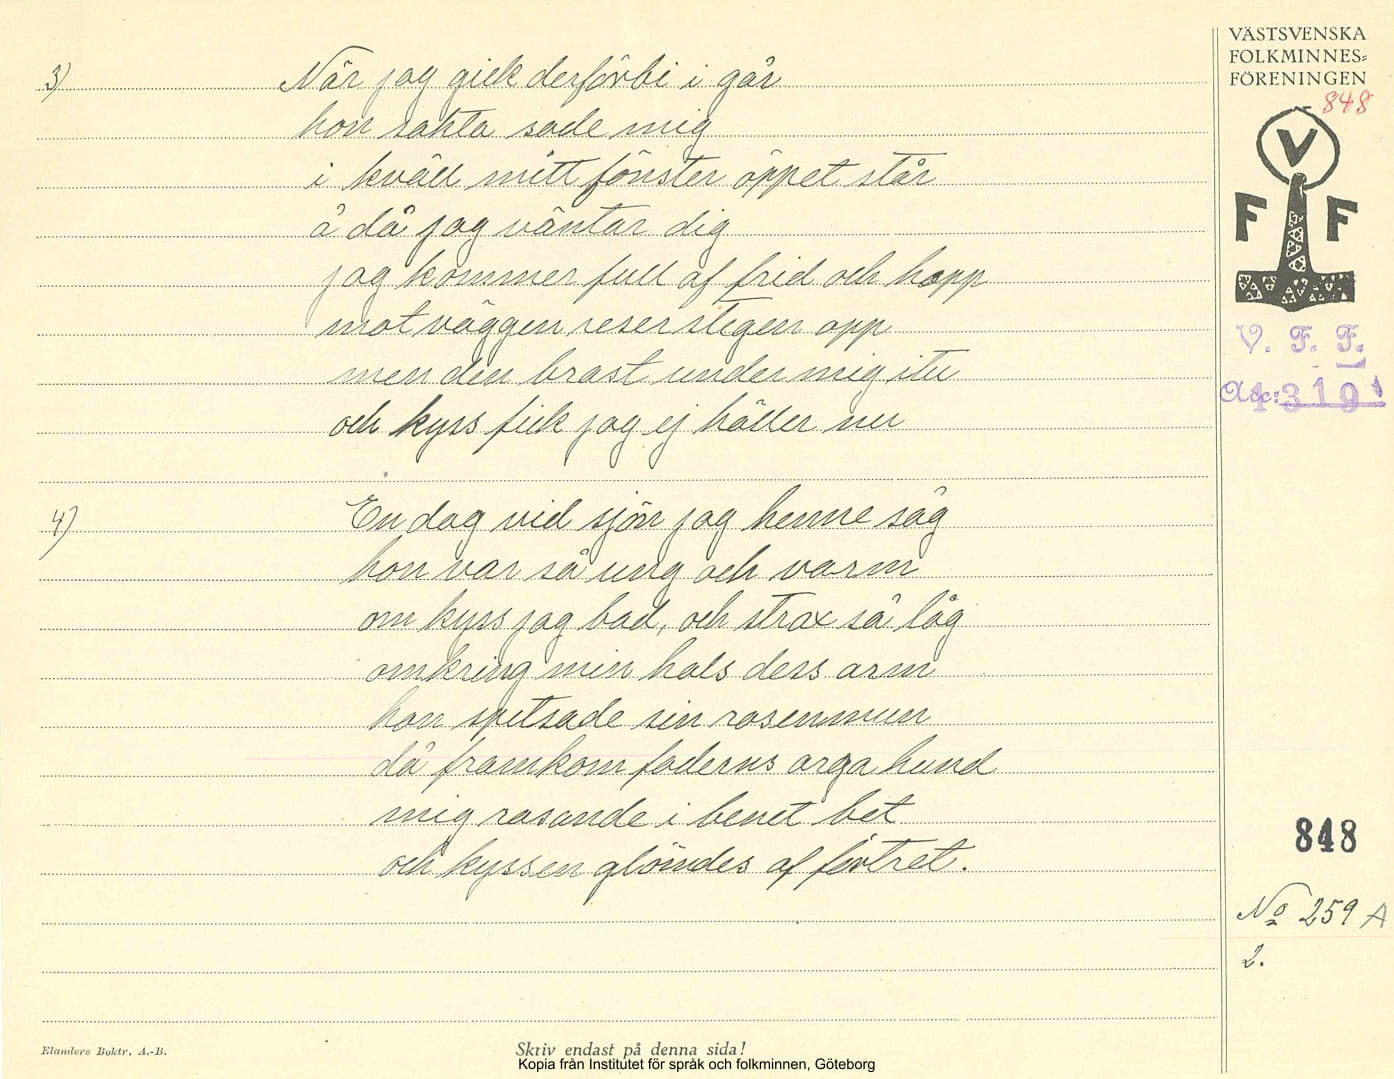 VÄSTSVENSKA
FOLKMINNES-
FÖRENINGEN
848
V
F F
V. F. F.
Acc: 1319
3) När jag gick derförbi i går
hon sakta sade mig
i kväll mitt fönster öppet står
å då jag väntar dig
jag kommer full af frid och hopp
mot väggen reser stegen opp
men den brast under mig itu
och kyss fick jag ej häller nu
4) En dag vid sjön jag henne såg
hon var så ung och varm
om kyss jag bad, och strax så låg
omkring min hals dess arm
hon spetsade sin rosenmun
då framkom faderns arga hund
mig rasande i benet bet
och kyssen glömdes af förtret.
848
No 259 A
2.
Elanders Boktr. A.-B.
Skriv endast på denna sida!
Kopia från Institutet för språk och folkminnen, Göteborg